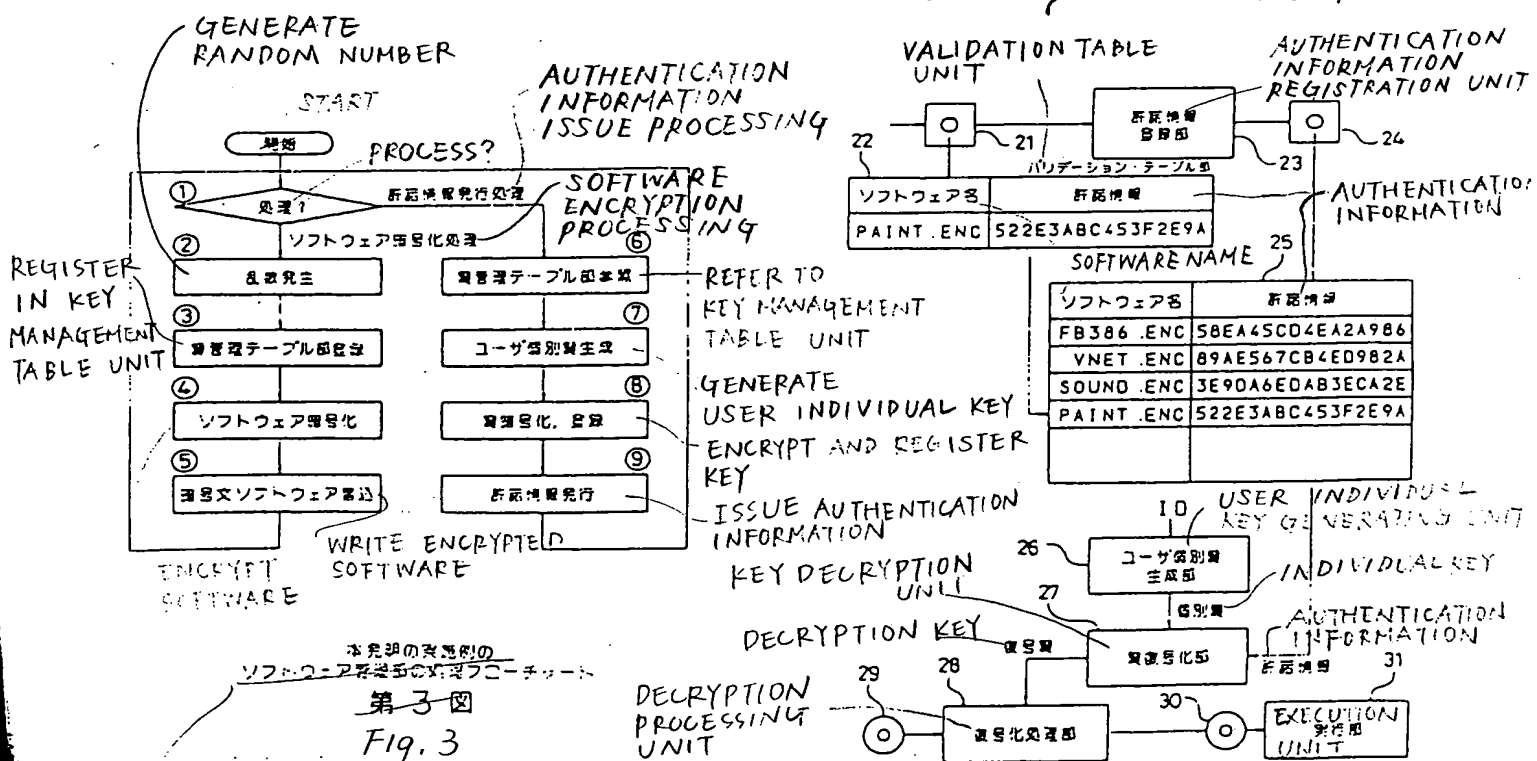 GENERATE
RANDOM NUMBER
START
開始
PROCESS?
AUTHENTICATION
INFORMATION
ISSUE PROCESSING
①
処理?
許諾情報発行処理
SOFTWARE
ENCRYPTION
PROCESSING
ソフトウェア暗号化処理
②
乱数発生
⑥
鍵管理テーブル部参照
REGISTER
IN KEY
MANAGEMENT
TABLE UNIT
REFER TO
KEY MANAGEMENT
TABLE UNIT
③
鍵管理テーブル部登録
⑦
ユーザ個別鍵生成
GENERATE
USER INDIVIDUAL KEY
④
ソフトウェア暗号化
⑧
鍵暗号化、登録
ENCRYPT AND REGISTER
KEY
⑤
暗号文ソフトウェア書込
⑨
許諾情報発行
ISSUE AUTHENTICATION
INFORMATION
WRITE ENCRYPTED
SOFTWARE
ENCRYPT
SOFTWARE
本発明の実施例の
ソフトウェア
第3図
Fig. 3
VALIDATION TABLE
UNIT
AUTHENTICATION
INFORMATION
REGISTRATION UNIT
21
許諾情報
登録部
23
24
22
バリデーション・テーブル部
ソフトウェア名 許諾情報
PAINT .ENC 522E3ABC453F2E9A
AUTHENTICATIO
INFORMATION
SOFTWARE NAME
25
ソフトウェア名 許諾情報
FB386 .ENC 58EA45CD4EA2A986
VNET .ENC 89AE567CB4ED982A
SOUND .ENC 3E9DA6EDAB3ECA2E
PAINT .ENC 522E3ABC453F2E9A
ID
USER INDIVIDUAL
KEY GENERATING UNIT
26
ユーザ個別鍵
生成部
INDIVIDUAL KEY
個別鍵
KEY DECRYPTION
UNIT
27
鍵復号化部
AUTHENTICATION
INFORMATION
許諾情報
DECRYPTION KEY
復号鍵
DECRYPTION
PROCESSING
UNIT
29
28
復号化処理部
30
31
EXECUTION
実行部
UNIT